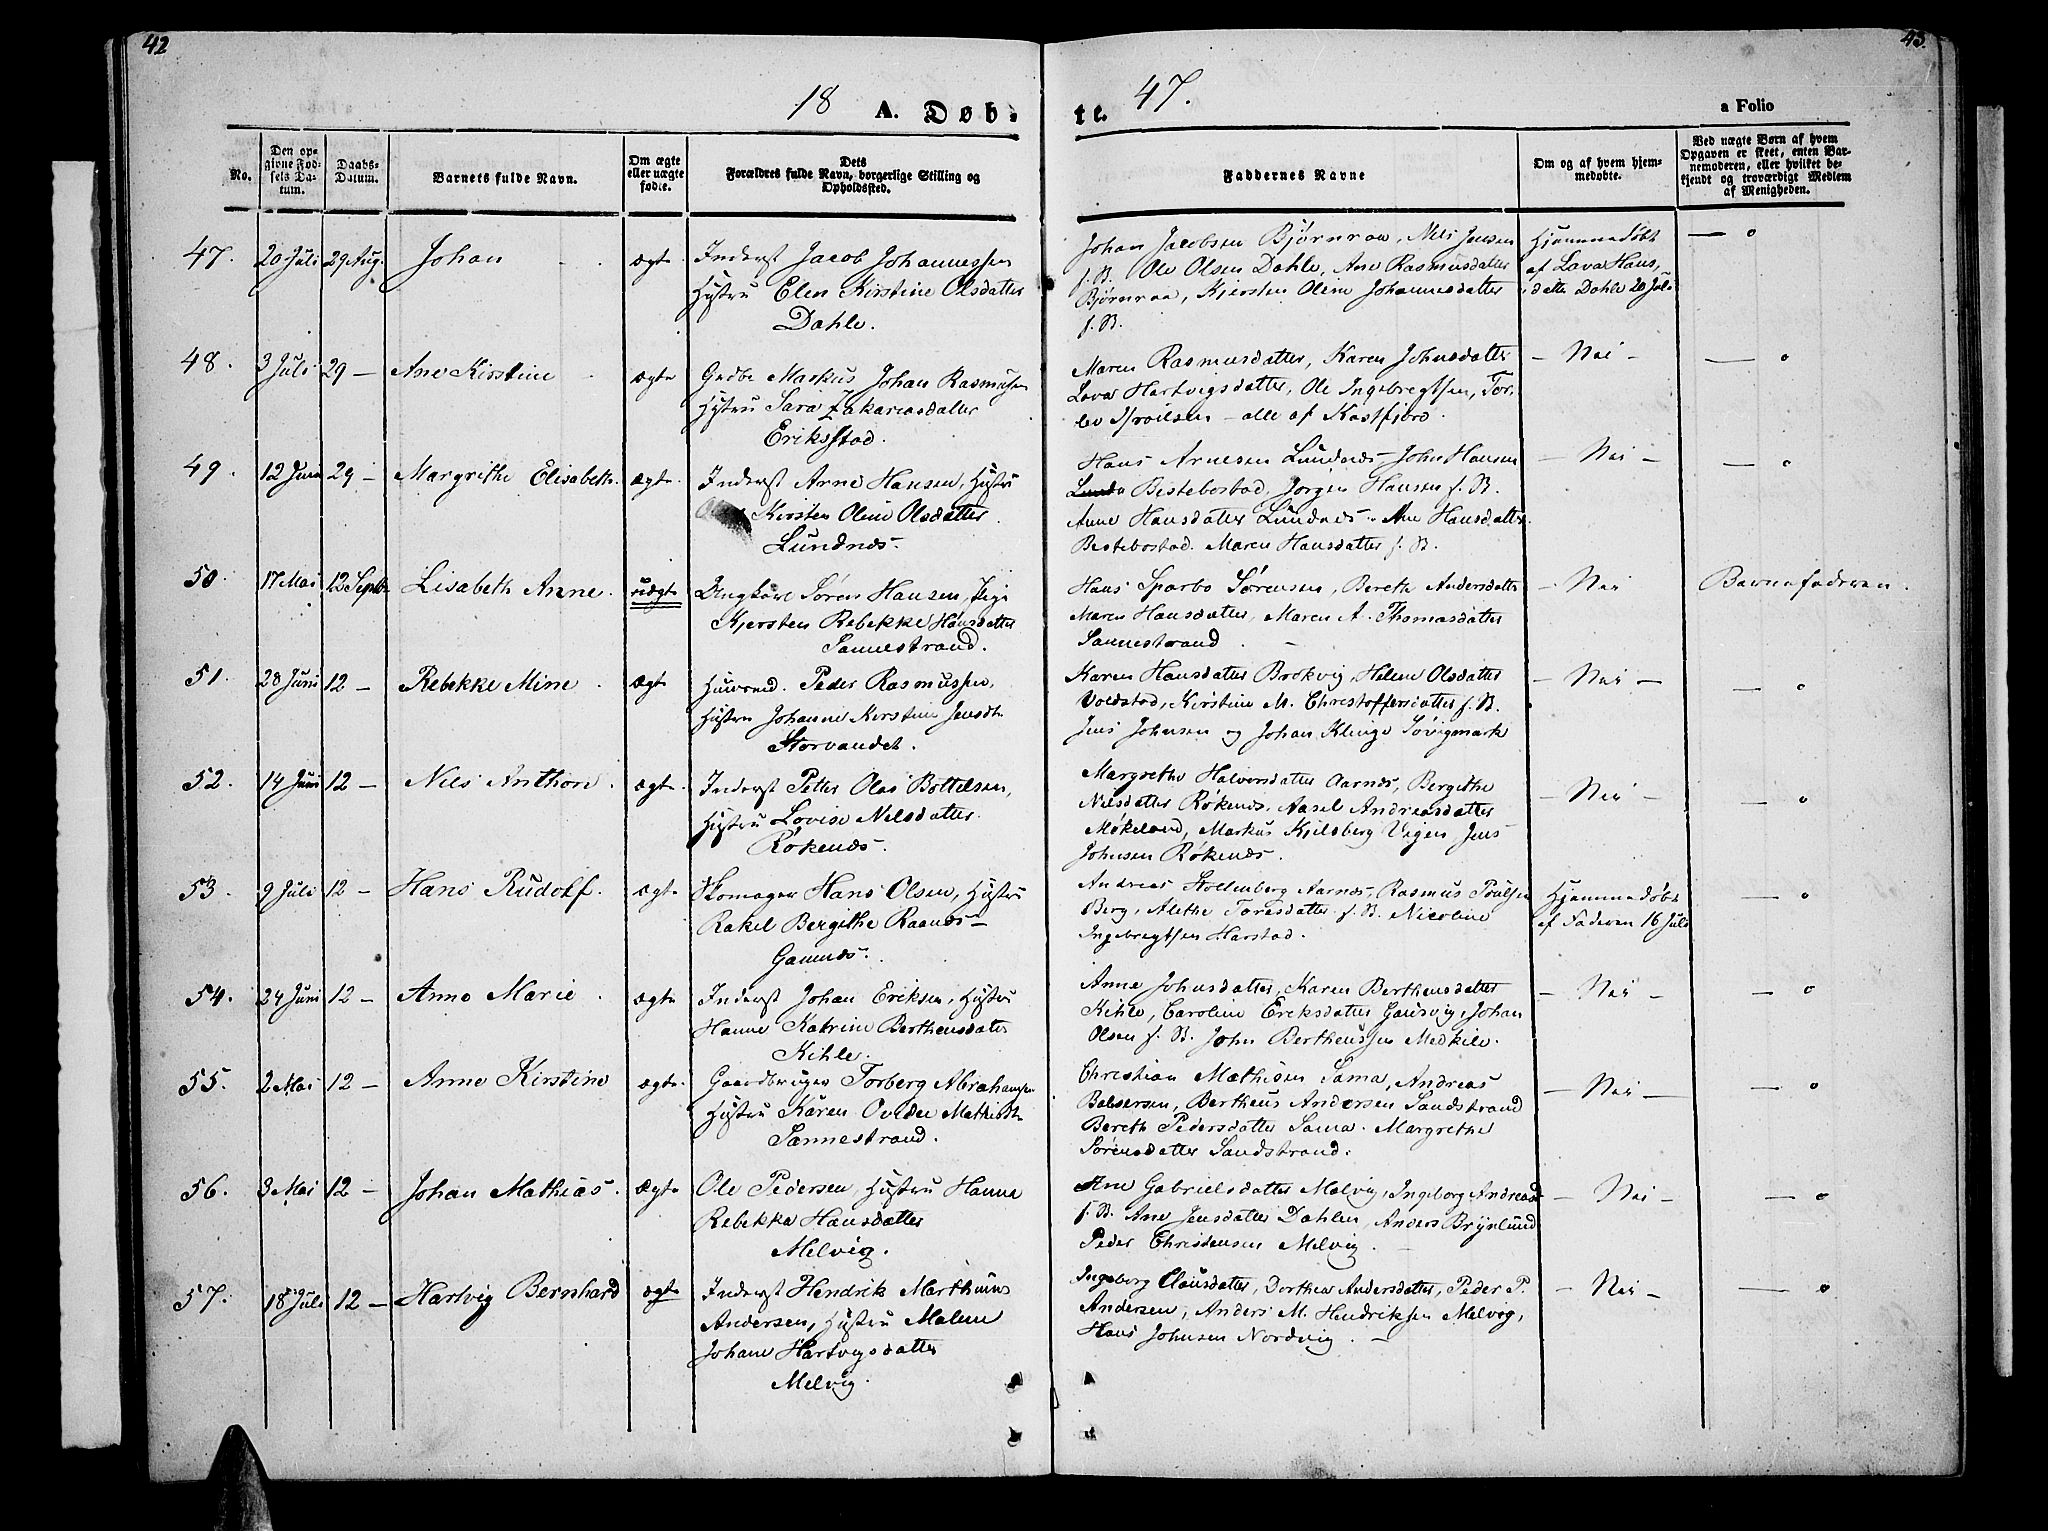 42
43.
18 A. Døb-
te. 47.
a Folio
No.
Den op-
givne Fød-
sels Da-
tum.
Daabs-
Datum.
Barnets fulde Navn.
Om ægte
eller uægte
fødte.
Dets
Forældres fulde Navn, borgerlige Stilling og
Opholdssted.
Faddernes Navne
Om og af hvem hjem-
medøbte.
Ved uægte Børn af hvem
Opgaven er skeet, enten Bar-
nemoderen, eller hvilket be-
kjendt og troværdigt Medlem
af Menigheden.
47. 20 Juli 29 Aug. Johan ægte
Inderst Jacob Johannessen
Hustru Elen Kirstine Olsdatter
Dahle.
Johan Jacobsen Bjørnraa, Nils Jensen
f. St. Ole Olsen Dahle, Ane Rasmusdatter
Bjørnraa, Kjersten Oline Johannesdatter
f. St.
Hjemmedøbt
af Lava Hans-
datter Dahle 20 Juli
— o
48. 3 Juli 29 — Ane Kirstine ægte
Gudbr Markus Johan Rasmusen
Hustru Sara Zakariasdatter
Eriksstad.
Maren Rasmusdatter, Karen Johnsdatter
Lava Hartvigsdatter, Ole Ingebregtsen, Tor-
lev Isroilsen – alle af Kastfjord.
— Nei —
— o
49. 12 Juni 29 — Margrithe Elisabeth. ægte.
Inderst Arne Hansen, Hustru
Kirsten Oline Olsdatter
Lundnæs.
Hans Arnesen Lundnæs – John Hansen
Bestebostad, Jørgen Hansen f. St.
Anne Hansdatter Lundnes – Ane Hansdatter
Bestebostad. Maren Hansdatter f. St.
— Nei —
— o
50. 17 Mai 12 Septbr Lisabeth Anne. uægte
Ungkarl Søren Hansen, Pige
Kjersten Rebekke Hansdatter
Sannestrand.
Hans Sparbo Sørensen, Bereth Andersdatter
Maren Hansdatter, Maren A. Thomasdatter
Sannestrand.
— Nei
Barnefaderen.
51. 28 Juni 12 — Rebekke Mine ægte
Huusmd. Peder Rasmussen,
Hustru Johanne Kirstine Jensdtr
Storvandet.
Karen Hansdatter Brokvig, Helene Olsdatter
Voldstad, Kirstine M. Christoffersdatter f. St.
Jens Johnsen og Johan Klinge Søvigmark
— Nei —
— o
52. 14 Juni 12 — Nils Anthon. ægte.
Inderst Petter Olai Bottelsen,
Hustru Lovise Nilsdatter
Røkenæs.
Margrethe Halversdatter Aarnæs, Bergithe
Nilsdatter Røkenæs. Aasel Andreasdatter
Møkeland, Markus Kjelsberg Vigen, Jens
Johnsen Røkenæs.
— Nei —
— o
53. 9 Juli 12 — Hans Rudolf. ægte
Skomager Hans Olsen, Hustru
Rakel Bergithe Raanæs –
Gannæs.
Andreas Stoltenberg Aarnæs, Rasmus Poulsen
Berg, Alethe Toresdatter f. St. Nicoline
Ingebregtsen Harstad.
Hjemmedøbt
af Faderen 16 Juli
— o
54. 24 Juni 12 — Anne Marie ægte
Inderst Johan Eriksen, Hustru
Hanne Katrine Berthensdatter
Kihle.
Anne Johnsdatter, Karen Berthensdatter
Kihle, Caroline Eriksdatter Gausvig, Johan
Olsen f. St. John Bertheussen Medkile.
— Nei —
— o
55. 2 Mai 12 — Anne Kirstine ægte.
Gaardbruger Torberg Abrahamsen
Hustru Karen Ovedie Mathisdtr
Sannestrand.
Christian Mathisen Sama, Andreas
Balsersen, Bertheus Andersen Sandstrand
Bereth Pedersdatter Sama. Margrethe
Sørensdatter Sandstrand.
— Nei —
— o
56. 3 Mai 12 — Johan Mathias. ægte
Ole Pedersen, Hustru Hanna
Rebekka Hansdatter
Melvig.
Ane Gabrielsdatter Melvig, Ingeborg Andreasd
f. St. Ane Jensdatter Dahlen, Anders Brynlund
Peder Christensen Melvig.
— Nei —
— o
57. 18 Juli 12 — Hartvig Bernhard ægte
Inderst Hendrik Marthinus
Andersen, Hustru Malene
Johane Hartvigsdatter
Melvig.
Ingeborg Clausdatter, Dorthea Andersdatter, Peder P.
Andersen, Anders M. Hendriksen Melvig,
Hans Johnsen Nordvig. —
— Nei —
— o